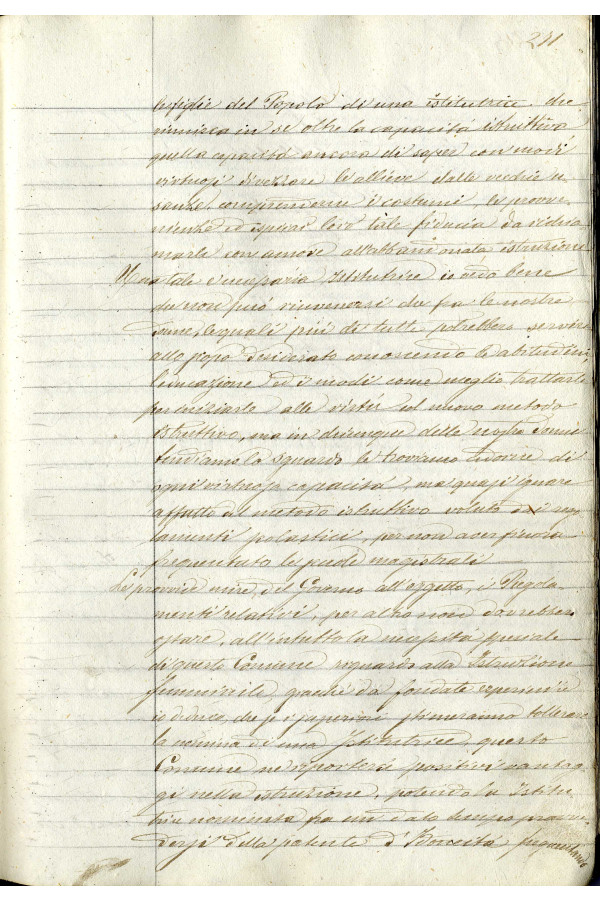 241
le figlie del Popolo di una istitutrice che
riunisca in se oltre la capacità istruttiva
quella capacità ancora di saper con modi
virtuosi divezzare le allieve dalle vecchie u
sanze, comprenderne i costumi, le prove
nienze ed ispirar loro tale fiducia da richia
marle con amore all'abbandonata istruzione
Una tale necessaria Istitutrice io credo bene
che non può rinvenirsi che fra le nostre
Donne, le quali più di tutti potrebbero servire
allo scopo desiderato conoscendo le abitudini
l'educazione ed i modi come meglio trattarle
per iniziarle alle virtù col nuovo metodo
istruttivo, ma in chiunque delle nostre Donne
tendiamo lo sguardo le troviamo di
ogni virtuosa capacità, ma quasi ignare
affatto del metodo istruttivo voluto dai rego
lamenti scolastici, per non aver finora
frequentato le scuole magistrali
Le provvide mire del Governo all'oggetto, i Regola
menti relativi, per altro non dovrebbero
ostare, all'intutto la necessità speciale
di questo Comune riguardo alla Istruzione
femminile giacché da fondate esperienze
io dico, che se i superiori stimeranno tollerare
la nomina di una Istitutrice, questo
Comune ne riporterà positivi vantag
gi nella istruzione, potendo la Istitu
trice nominata fra un dato tempo provve
dersi della patente d'Idoneità, frequentando